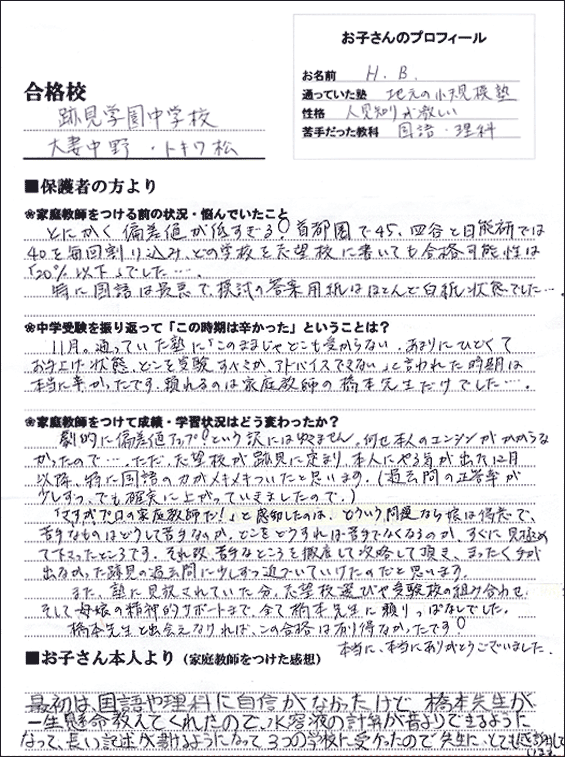 お子さんのプロフィール
お名前 H.B.
通っていた塾 地元の小規模塾
性格 人見知りが激しい
苦手だった教科 国語・理科
合格校
跡見学園中学校
大妻中野・トキワ松
■保護者の方より
❀家庭教師をつける前の状況・悩んでいたこと
とにかく偏差値が低すぎる!首都圏で45、四谷と日能研では
40を毎回割り込み、どの学校を志望校に書いても合格可能性は
「20%以下」でした…。
特に国語は最悪で、模試の答案用紙はほとんど白紙状態でした…
❀中学受験を振り返って「この時期は辛かった」ということは?
11月。通っていた塾に「このままじゃどこも受からない。あまりにひどくて
お手上げ状態、どこを受験すべきか、アドバイスできない」と言われた時期は
本当に辛かったです。頼れるのは家庭教師の橋本先生だけでした…。
❀家庭教師をつけて成績・学習状況はどう変わったか?
劇的に偏差値アップ!という訳にはゆきません。何せ本人のエンジンがかからな
かったので…。ただ、志望校が跡見に定まり、本人にやる気が出た12月
以降、特に国語の力がメキメキついたと思います。(過去問の正答率が
少しずつ、でも確実に上がっていきましたので。)
「さすがプロの家庭教師だ!」と感動したのは、どういう問題なら娘は得意で、
苦手なものはどうして苦手なのか、どこをどうすれば苦手でなくなるのか、すぐに見極め
て下さったところです。それ故、苦手なところを徹底して攻略して頂き、まったく手が
出なかった跡見の過去問に少しずつ近づいていけたのだと思います。
また、塾に見放されていた分、志望校選びや受験校の組み合わせ、
そして母娘の精神的サポートまで、全て橋本先生に頼りっぱなしでした。
橋本先生と出会えなければ、この合格は有り得なかったです!
本当に、本当にありがとうございました。
■お子さん本人より(家庭教師をつけた感想)
最初は、国語や理科に自信がなかったけど、橋本先生が
一生懸命教えてくれたので、水溶液の計算が昔よりできるように
なって、長い記述が書けるようになって3つの学校に受かったので先生に、とても感謝して
います。